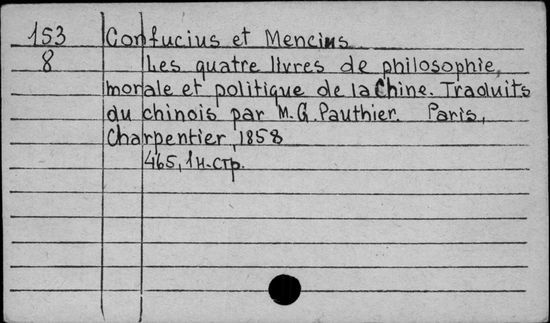 153 Confucius et Mencius
8 Les quatre livres de philosophie,
morale et politique de la Chine. Traduits
du chinois par M.G. Pauthier. Paris,
Charpentier, 1858
465, 1 н. стр.